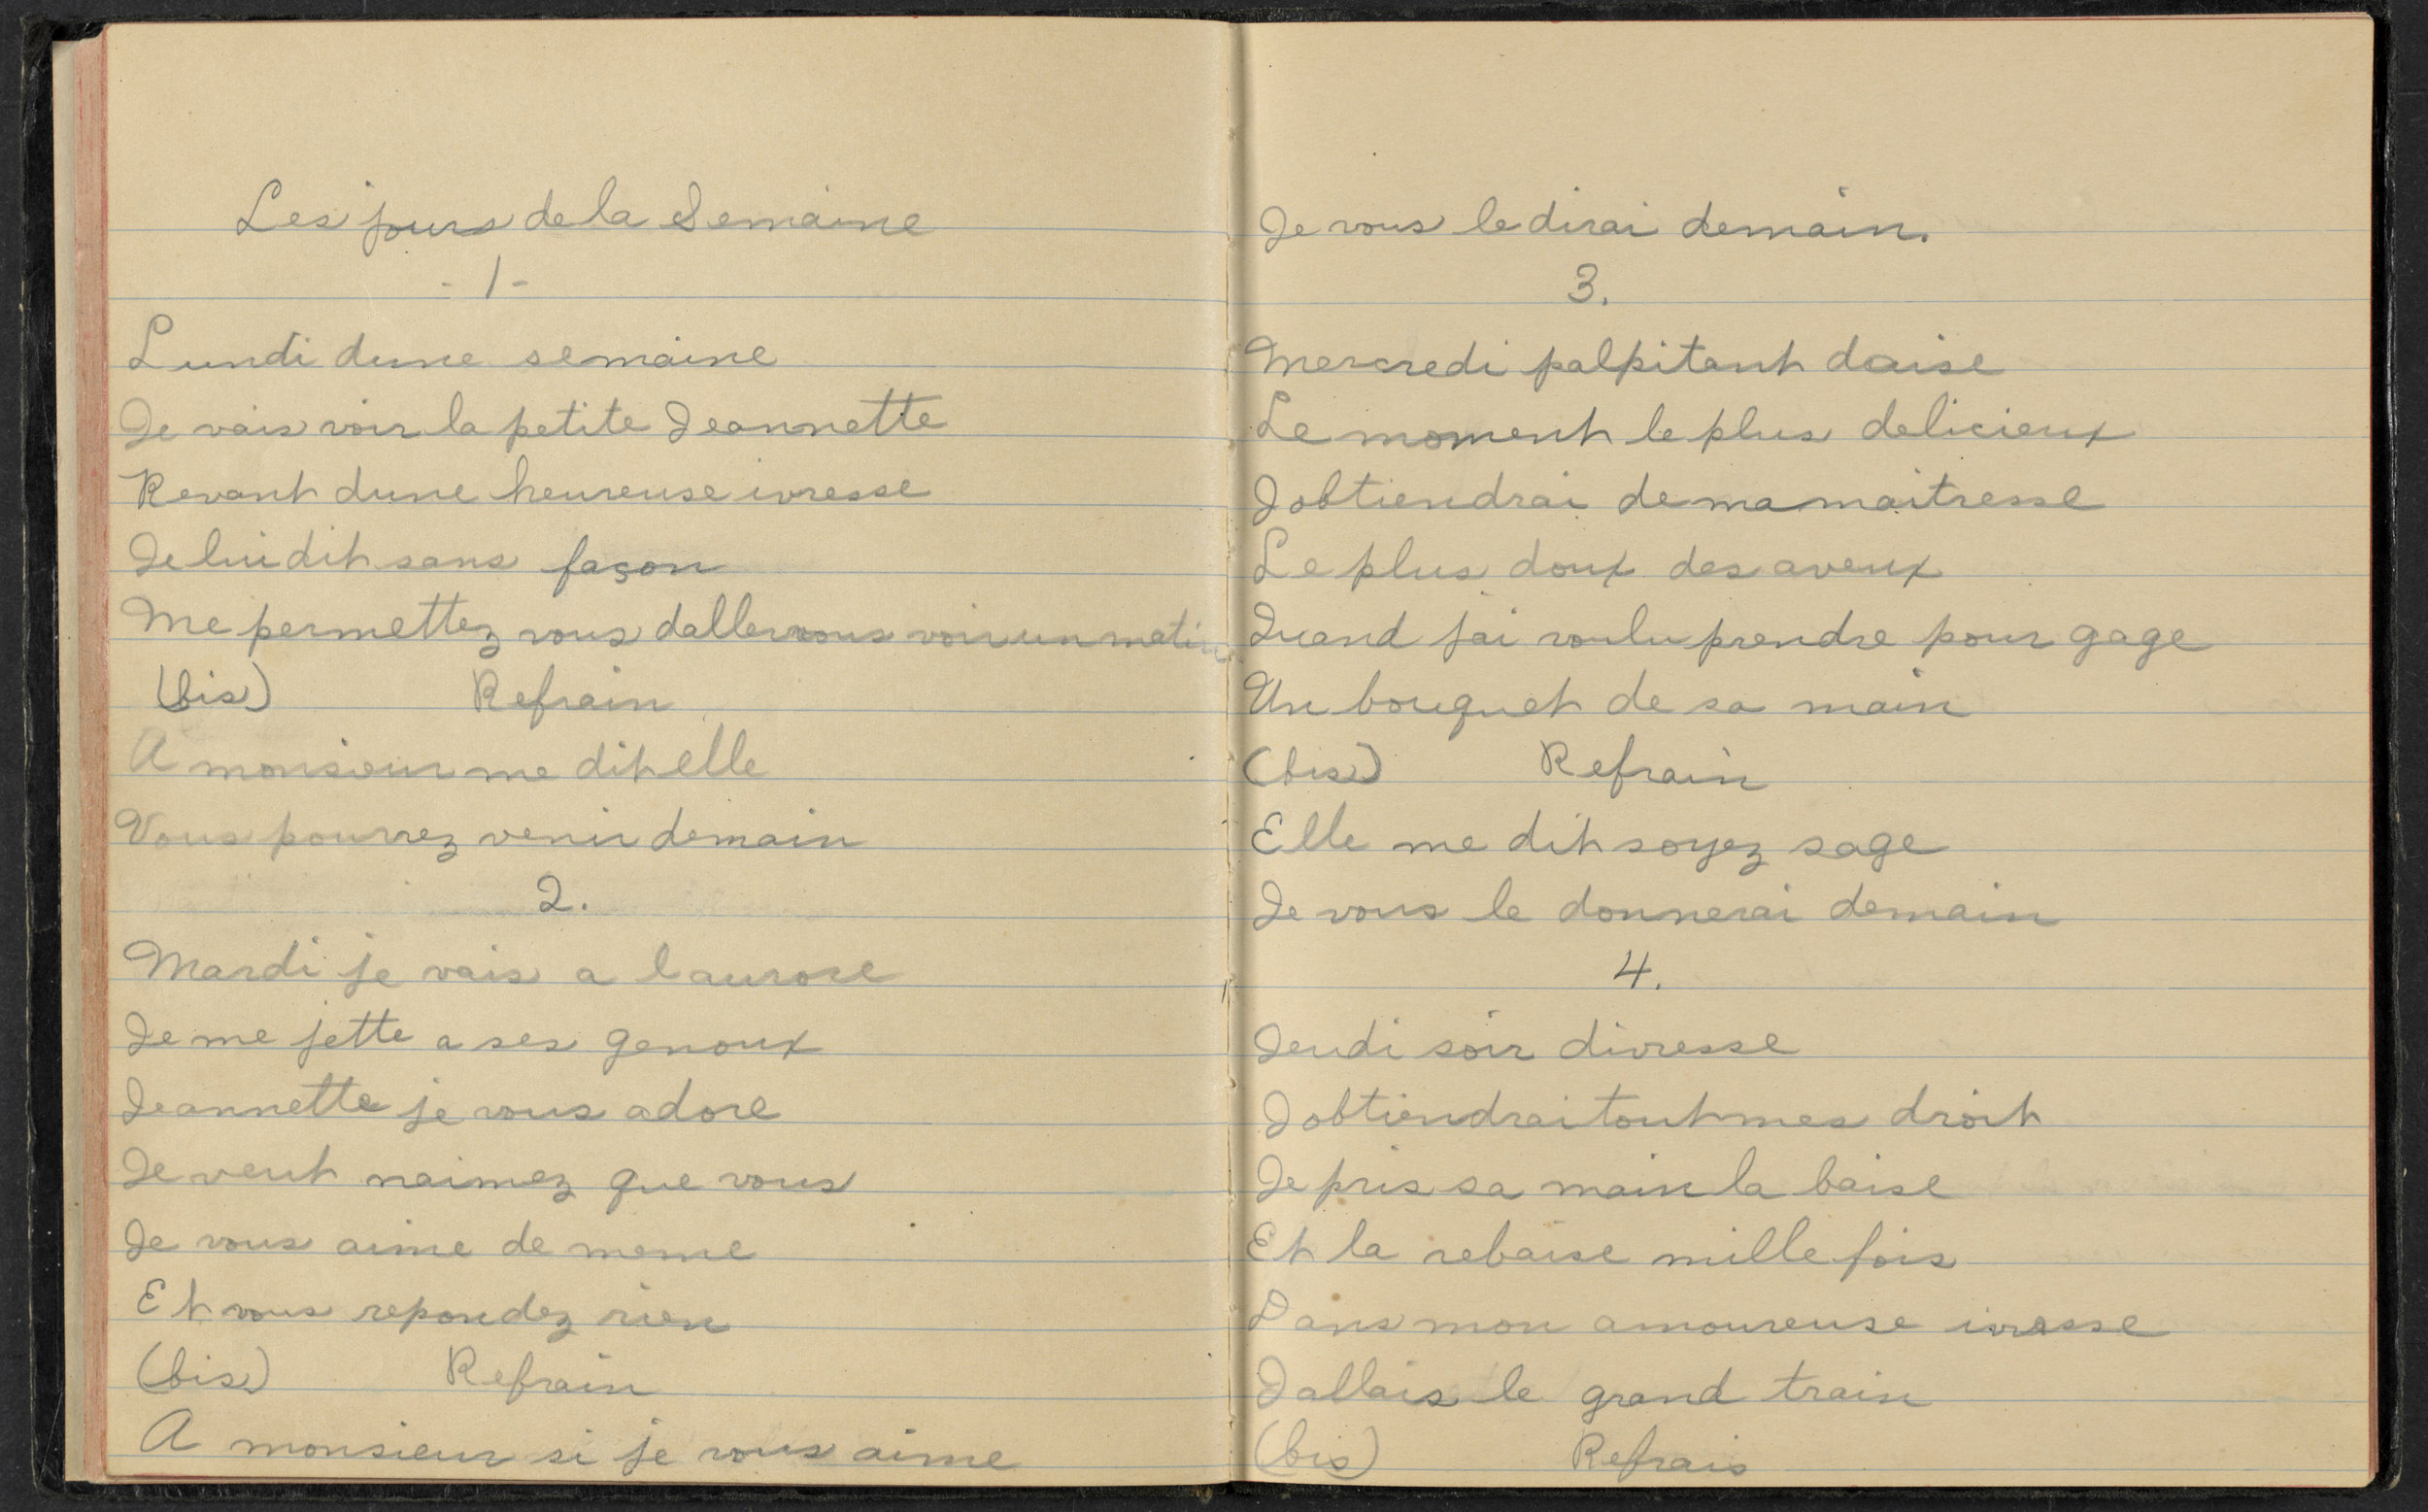 Les jours de la Semaine
- 1 -
Lundi dune semaine
Je vais voir la petite Jeannette
Revant dune heureuse ivresse
Je lui dit sans façon
Me permettez vous daller vous voir un matin
(bis) Refrain
A monsieur me dit elle
Vous pourrez venir demain
2.
Mardi je vais a laurore
Je me jette a ses genoux
Jeannette je vous adore
Je veut naimez que vous
Je vous aime de meme
Et vous repondez rien
(bis) Refrain
A monsieur si je vous aime
Je vous le dirai demain.
3.
Mercredi palpitant daise
Le moment le plus delicieux
Jobtiendrai de ma maitresse
Le plus doux des aveux
Quand jai voulu prendre pour gage
Un bouquet de sa main
(bis) Refrain
Elle me dit soyez sage
Je vous le donnerai demain
4.
Jeudi soir divresse
Jobtiendrai tout mes droit
Je pris sa main la baise
Et la rebaise mille fois
Dans mon amoureuse ivresse
Jallais le grand train
(bis) Refrais